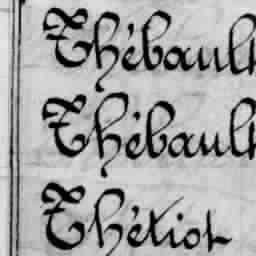 Thébault
Thébault
Thétiot